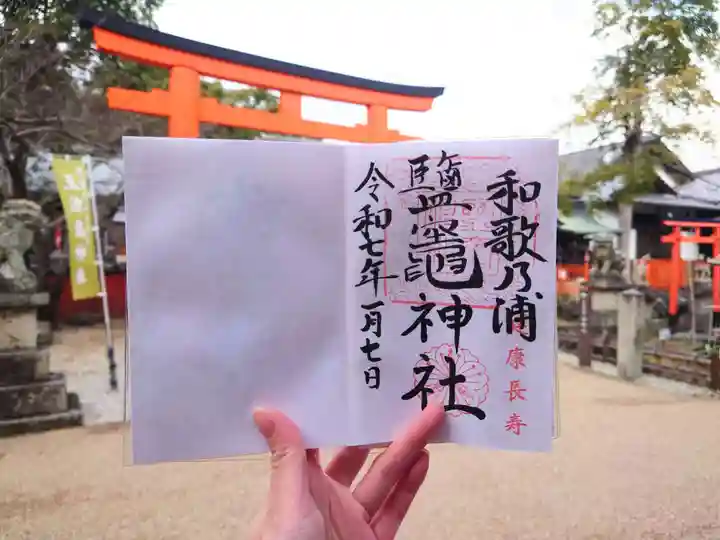 和歌乃浦
鹽竈神社
令和七年一月七日
康長寿